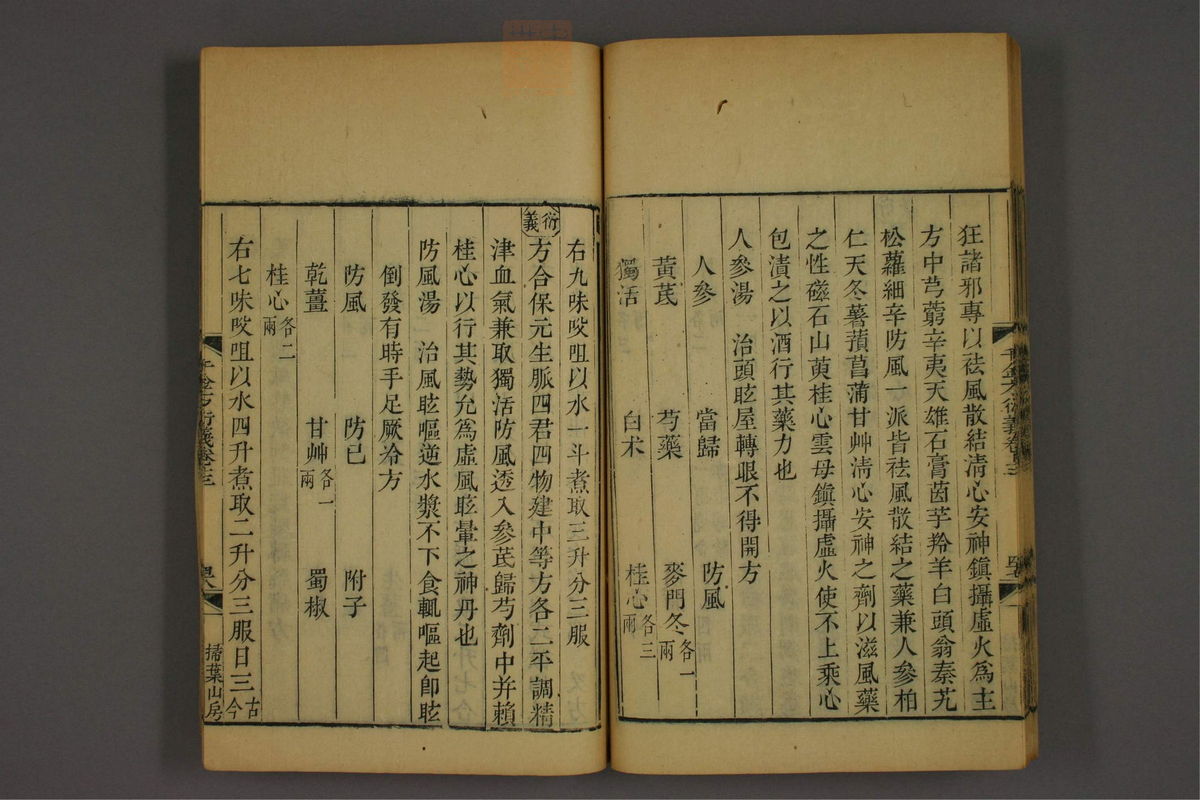 狂諸邪專以祛風散結清心安神鎭攝虛火爲主
方中芎藭辛夷天雄石膏茵芋羚羊白頭翁秦艽
松蘿細辛防風一派皆祛風散結之藥兼人參柏
仁天冬薯蕷菖蒲甘艸淸心安神之劑以滋風藥
之性磁石山萸桂心雲母鎭攝虛火使不上乘心
包漬之以酒行其藥力也
人參湯 治頭眩屋轉眼不得開方
人參 當歸 防風
黃芪 芍藥 麥門冬各一兩
獨活 白术 桂心各三兩
千金方衍義卷十三
右九味㕮咀以水一斗煮取三升分三服
衍義 方合保元生脈四君四物建中等方各二平調精
津血氣兼取獨活防風透入參芪歸芍劑中并賴
桂心以行其勢允爲虛風眩暈之神丹也
防風湯 治風眩嘔逆水漿不下食輒嘔起卽眩
倒發有時手足厥冷方
防風 防已 附子
乾薑 甘艸各一兩 蜀椒
桂心各二兩
右七味㕮咀以水四升煮取二升分三服日三古今
千金方衍義卷十三
掃葉山房